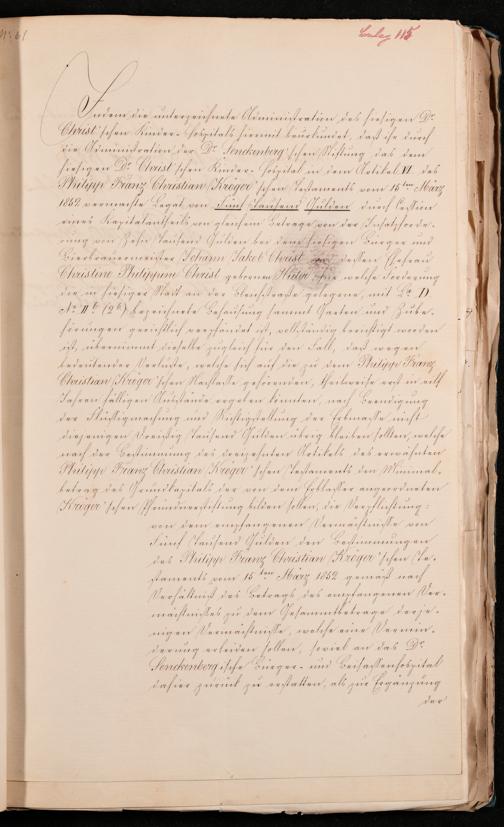 No 61
Beilag 115
Indem die unterzeichnete Administration des hiesigen Dr.
Christ'schen Kinder-Hospitals hiermit beurkundet, daß ihr durch
die Administration der Dr. Senckenberg'schen Stiftung das dem
hiesigen Dr. Christ'schen Kinder-Hospital in dem Artikel VI des
Philipp Franz Christian Kröger'schen Testaments vom 15ten März
1852 vermachte Legat von Fünf Tausend Gulden durch Cession
eines Kapitalantheils von gleichem Betrage von der Insatzforde-
rung von Zehn Tausend Gulden bei dem hiesigen Bürger und
Bierbrauermeister Johann Jakob Christ und dessen Ehefrau
Christine Philippine Christ geborenen für welche Forderung
die in hiesiger Stadt an der Bleichstraße gelegene, mit Lit. D
No. II b (2b) bezeichnete Behausung sammt Garten und Zube-
hörungen gerichtlich verpfändet ist, vollständig berichtigt worden
ist, übernimmt dieselbe zugleich für den Fall, daß wegen
bedeutender Verluste, welche sich auf die zu dem Philipp Franz
Christian Kröger'schen Nachlasse gehörenden, theilweise erst in acht
Jahren fälligen Ausstände ergeben könnten, nach Beendigung
der Flüssigmachung und Richtigstellung der Erbmasse nicht
diejenigen Dreissig Tausend Gulden übrig bleiben sollten, welche
nach der Bestimmung des dreizehnten Artikels des erwähnten
Philipp Franz Christian Kröger'schen Testaments den Minimal-
betrag des Grundkapitals der von dem Erblasser angeordneten
Kröger'schen Pfründnerstiftung bilden sollen, die Verpflichtung:
von dem empfangenen Vermächtnisse von
Fünf Tausend Gulden den Bestimmungen
des Philipp Franz Christian Kröger'schen Te-
staments vom 15ten März 1852 gemäß nach
Verhältniß des Betrags des empfangenen Ver-
mächtnisses zu dem Gesammtbetrage derje-
nigen Vermächtnisse, welche eine Vermin-
derung erleiden sollen, soviel an das Dr.
Senckenbergische Bürger- und Beisassenhospital
dahier zurück zu erstatten, als zur Ergänzung
der